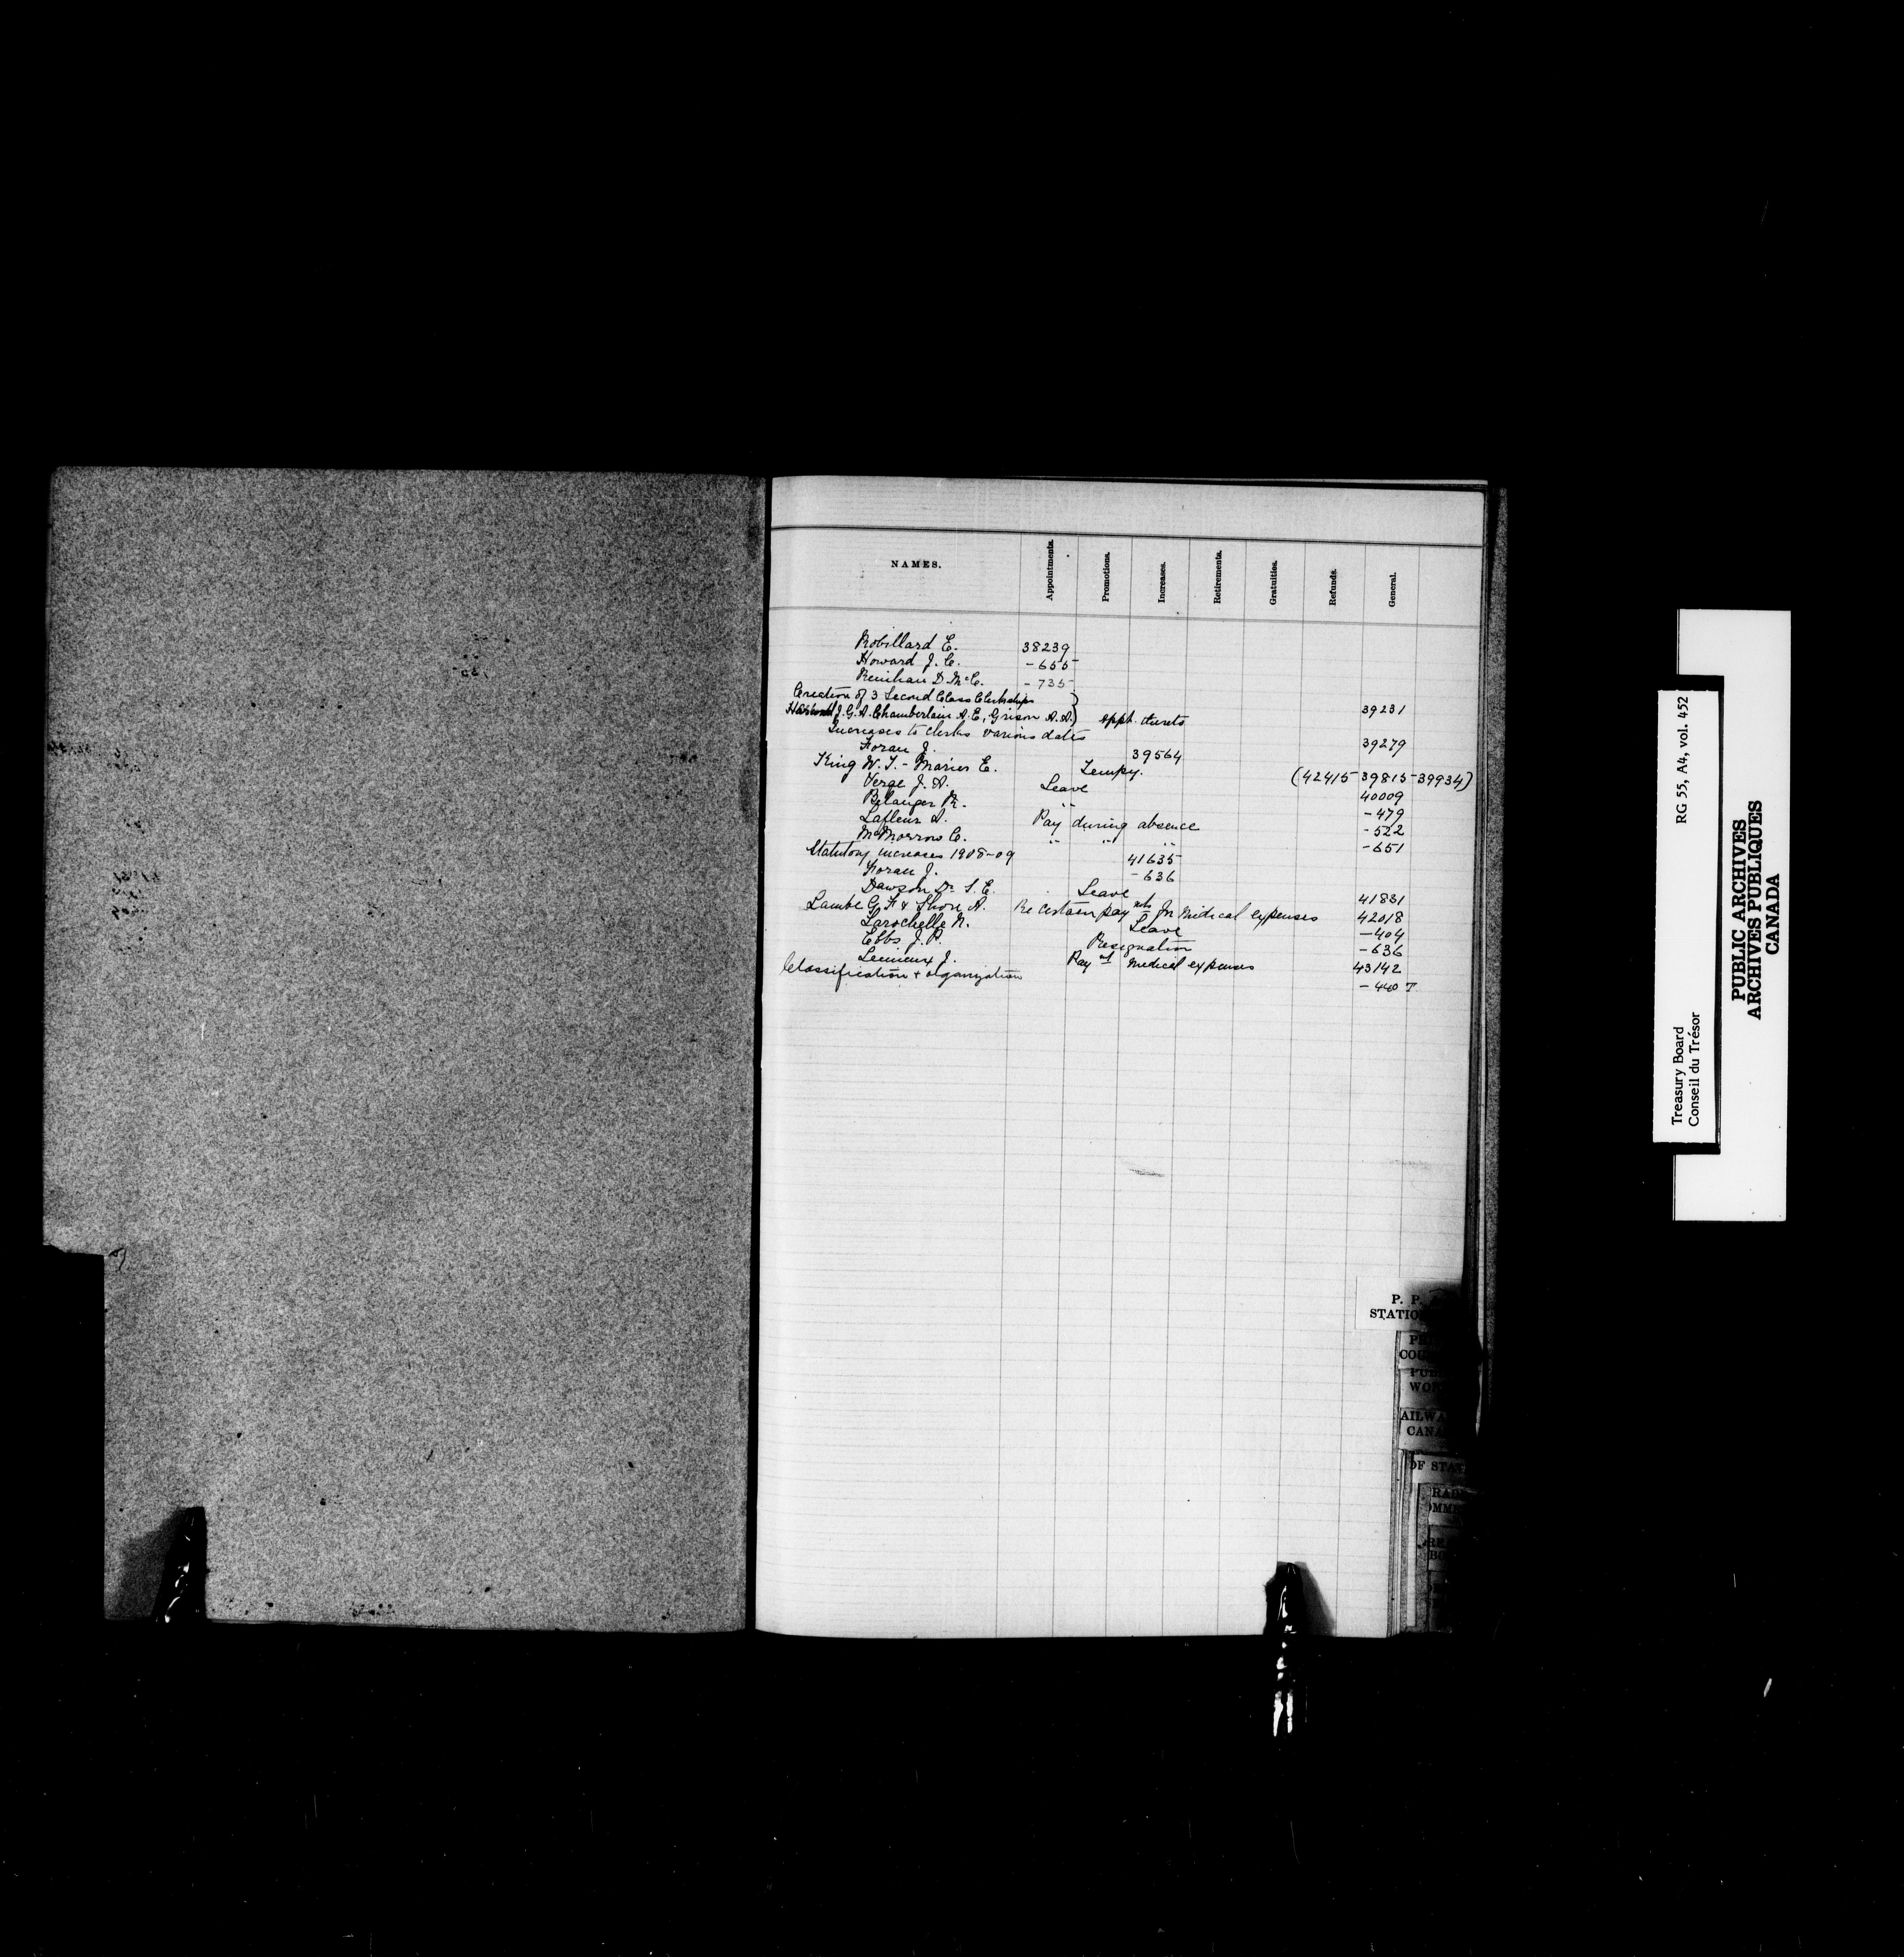 NAMES. Appointments. Promotions. Increases. Retirements. Gratuities. Refunds. General.
Robillard E. 38239
Howard J. C. - 655
Renihan D. McC. - 735
Creation of 3 Second Class Clerkships } 39231
J. G. A. Chamberlain A. E, Grison A. A. } appt. thereto
Increases to clerks various dates 39279
Foran J. 39564
King W. T. - Marier E. Tempy. (42415 - 39815 - 39934)
Verge J. A. Leave 40009
Belanger R. " - 479
Lafleur A. Pay during absence - 522
McMorrow C. " " " - 651
Statutory increases 1908-09 41635
Foran J. - 636
Dawson Dr S. E. Leave 41831
Lambe G. F. & Shore A. Re certain paymts for medical expenses 42018
Larochelle N. Leave - 404
Ebbs J. P. Resignation - 636
Lemieux J. Paymt medical expenses 43142
Classification & organization - 440 T
P. P.
STATIO
COU
PUB
WO
AILWA
CANA
OF STA
RAD
OMM
Treasury Board RG 55, A4, vol. 452
Conseil du Trésor
PUBLIC ARCHIVES
ARCHIVES PUBLIQUES
CANADA